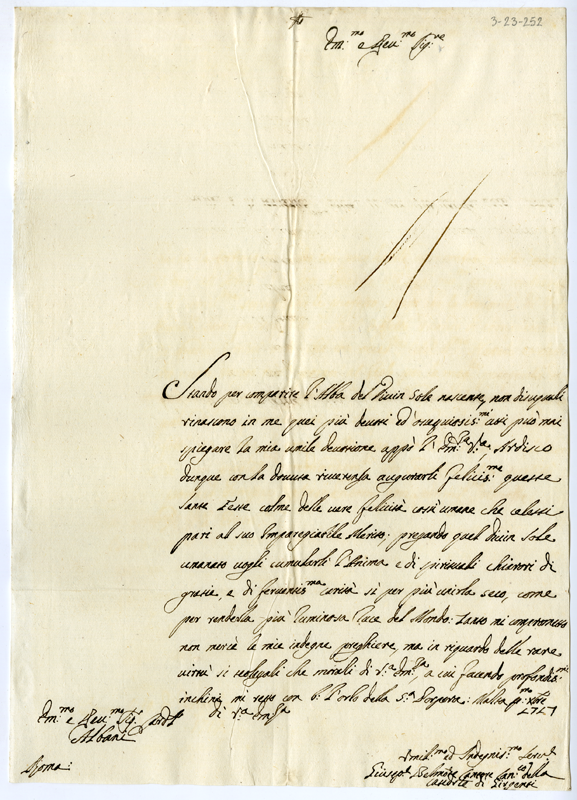 3-23-252
Em:mo e Rev:mo Sig:re
Stando per comparire l'Alba del Divin Sole nascente, non disuguali
rinascono in me quei più devoti ed ossequiosis:mi
spiegare la mia umile devozione appò l'Em:za V:ra, Ardisco
dunque con la dovuta riverenza augurarli felicis:me queste
Sante Feste colme delle vere felicità così umane che celesti
pari al suo Impareggiabile Merito; pregando quel Divin Sole
umanato vogli cumularli l'Anima e di spirituali chiarori di
gratie, e di ferventis:ma carità sì per più unirla seco, come
per renderla più luminosa face del Mondo: Tanto mi comprometto
non mercè le mie indegne preghiere, ma in riguardo delle rare
virtù sì teologali che morali di V:a Em:za, a cui facendo profondis:mi
inchini, mi resto con b: l'orlo della S:a Porpora: Malta p:mo Xbre
di V:a Em:za 1727
Em:mo e Rev:mo Sig:r Card:le
Albani
Roma:
Umil:mo ed Indegnis:mo Serv:e
Giusep:e Can:co della
di Girgenti